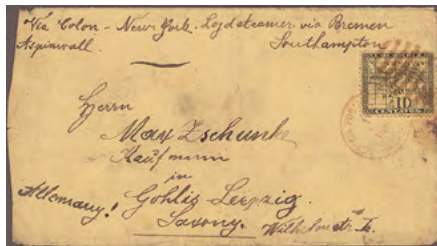 Via Colon - New York. Lojdsteamer via Bremen
Aspinwall. Southampton
Herrn
Max Zschunke
Kaufmann
in
Gohlis Leipzig.
Allemany! Saxony. Wilhelmstr.
10
CENTAVOS